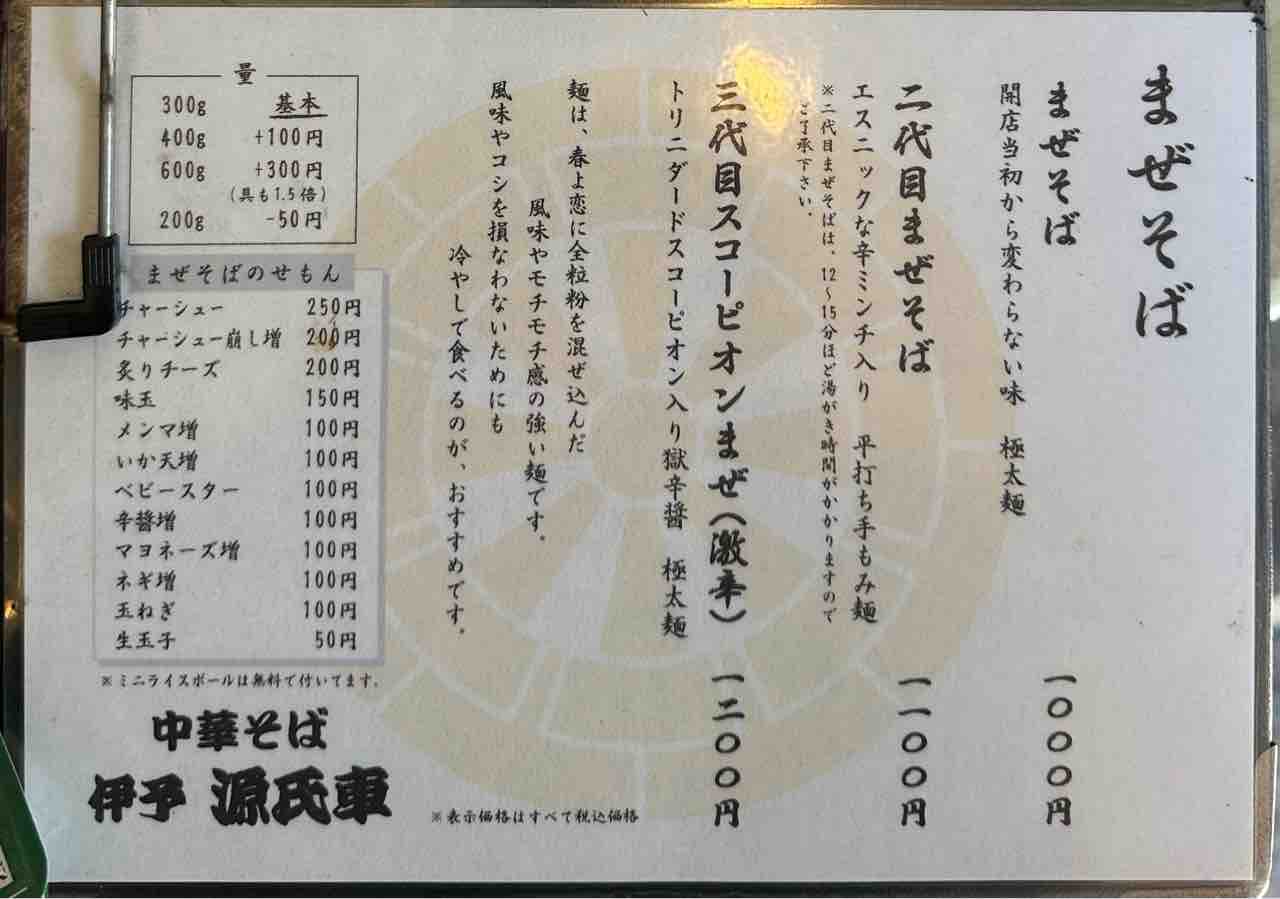 まぜそば
まぜそば 一〇〇〇円
開店当初から変わらない味 極太麺
二代目まぜそば 一一〇〇円
エスニックな辛ミンチ入り 平打ち手もみ麺
※二代目まぜそばは、12〜15分ほど湯がき時間がかかりますので
ご了承下さい。
三代目スコーピオンまぜ(激辛) 一二〇〇円
トリニダードスコーピオン入り獄辛醤 極太麺
麺は、春よ恋に全粒粉を混ぜ込んだ
風味やモチモチ感の強い麺です。
風味やコシを損なわないためにも
冷やしで食べるのが、おすすめです。
量
300g 基本
400g +100円
600g +300円
(具も1.5倍)
200g -50円
まぜそばのせもん
チャーシュー 250円
チャーシュー崩し増 200円
炙りチーズ 200円
味玉 150円
メンマ増 100円
いか天増 100円
ベビースター 100円
辛醤増 100円
マヨネーズ増 100円
ネギ増 100円
玉ねぎ 100円
生玉子 50円
※ミニライスボールは無料で付いてます。
中華そば
伊予 源氏車
※表示価格はすべて税込価格